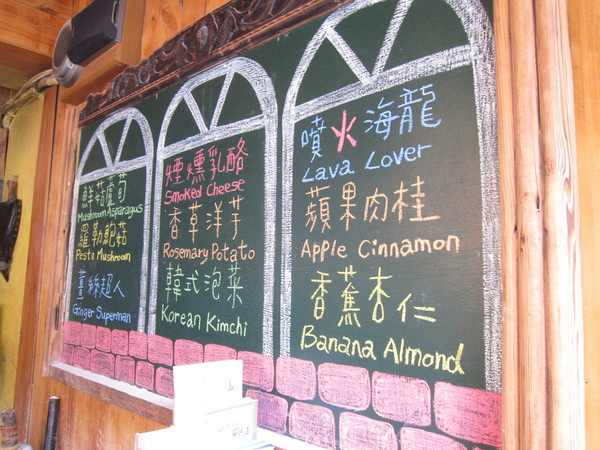 鮮菇蘆筍
Mushroom Asparagus
羅勒鮑菇
Pesto Mushroom
薑絲超人
Ginger Superman
煙燻乳酪
Smoked Cheese
香草洋芋
Rosemary Potato
韓式泡菜
Korean Kimchi
噴火海龍
Lava Lover
蘋果肉桂
Apple Cinnamon
香蕉杏仁
Banana Almond